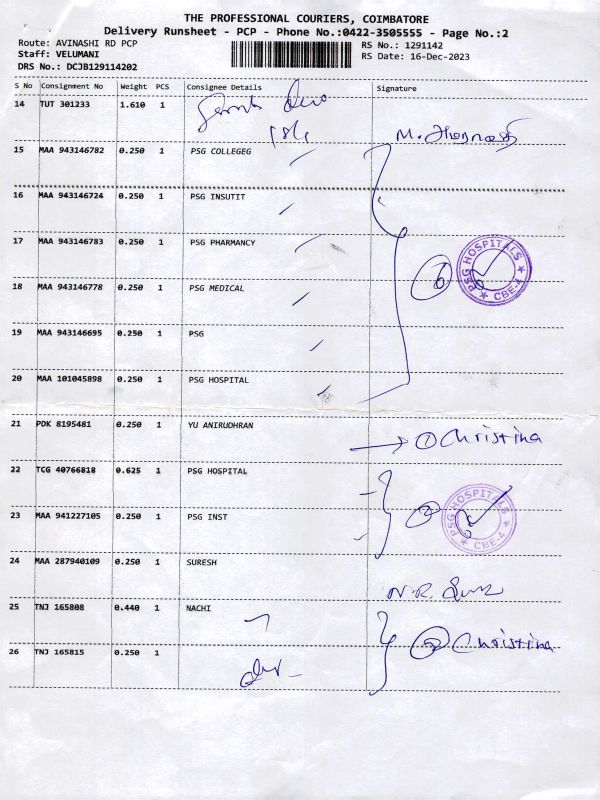 THE PROFESSIONAL COURIERS, COIMBATORE
Delivery Runsheet - PCP - Phone No.:0422-3505555 - Page No.:2
Route: AVINASHI RD PCP
Staff: VELUMANI
DRS No.: DCJB129114202
RS No.: 1291142
RS Date: 16-Dec-2023
S No Consignment No Weight PCS Consignee Details Signature
14 TUT 301233 1.610 1
M.
15 MAA 943146782 0.250 1 PSG COLLEGEG
16 MAA 943146724 0.250 1 PSG INSUTIT
17 MAA 943146783 0.250 1 PSG PHARMANCY
6 PSG HOSPITALS ★ CBE-4 ★
18 MAA 943146778 0.250 1 PSG MEDICAL
19 MAA 943146695 0.250 1 PSG
20 MAA 101045898 0.250 1 PSG HOSPITAL
21 PDK 8195481 0.250 1 YU ANIRUDHRAN
→ 1 Christina
22 TCG 40766818 0.625 1 PSG HOSPITAL
2 PSG HOSPITALS ★ CBE-4 ★
23 MAA 941227105 0.250 1 PSG INST
24 MAA 287940109 0.250 1 SURESH
N.R.
25 TNJ 165808 0.440 1 NACHI
2 Christina
26 TNJ 165815 0.250 1